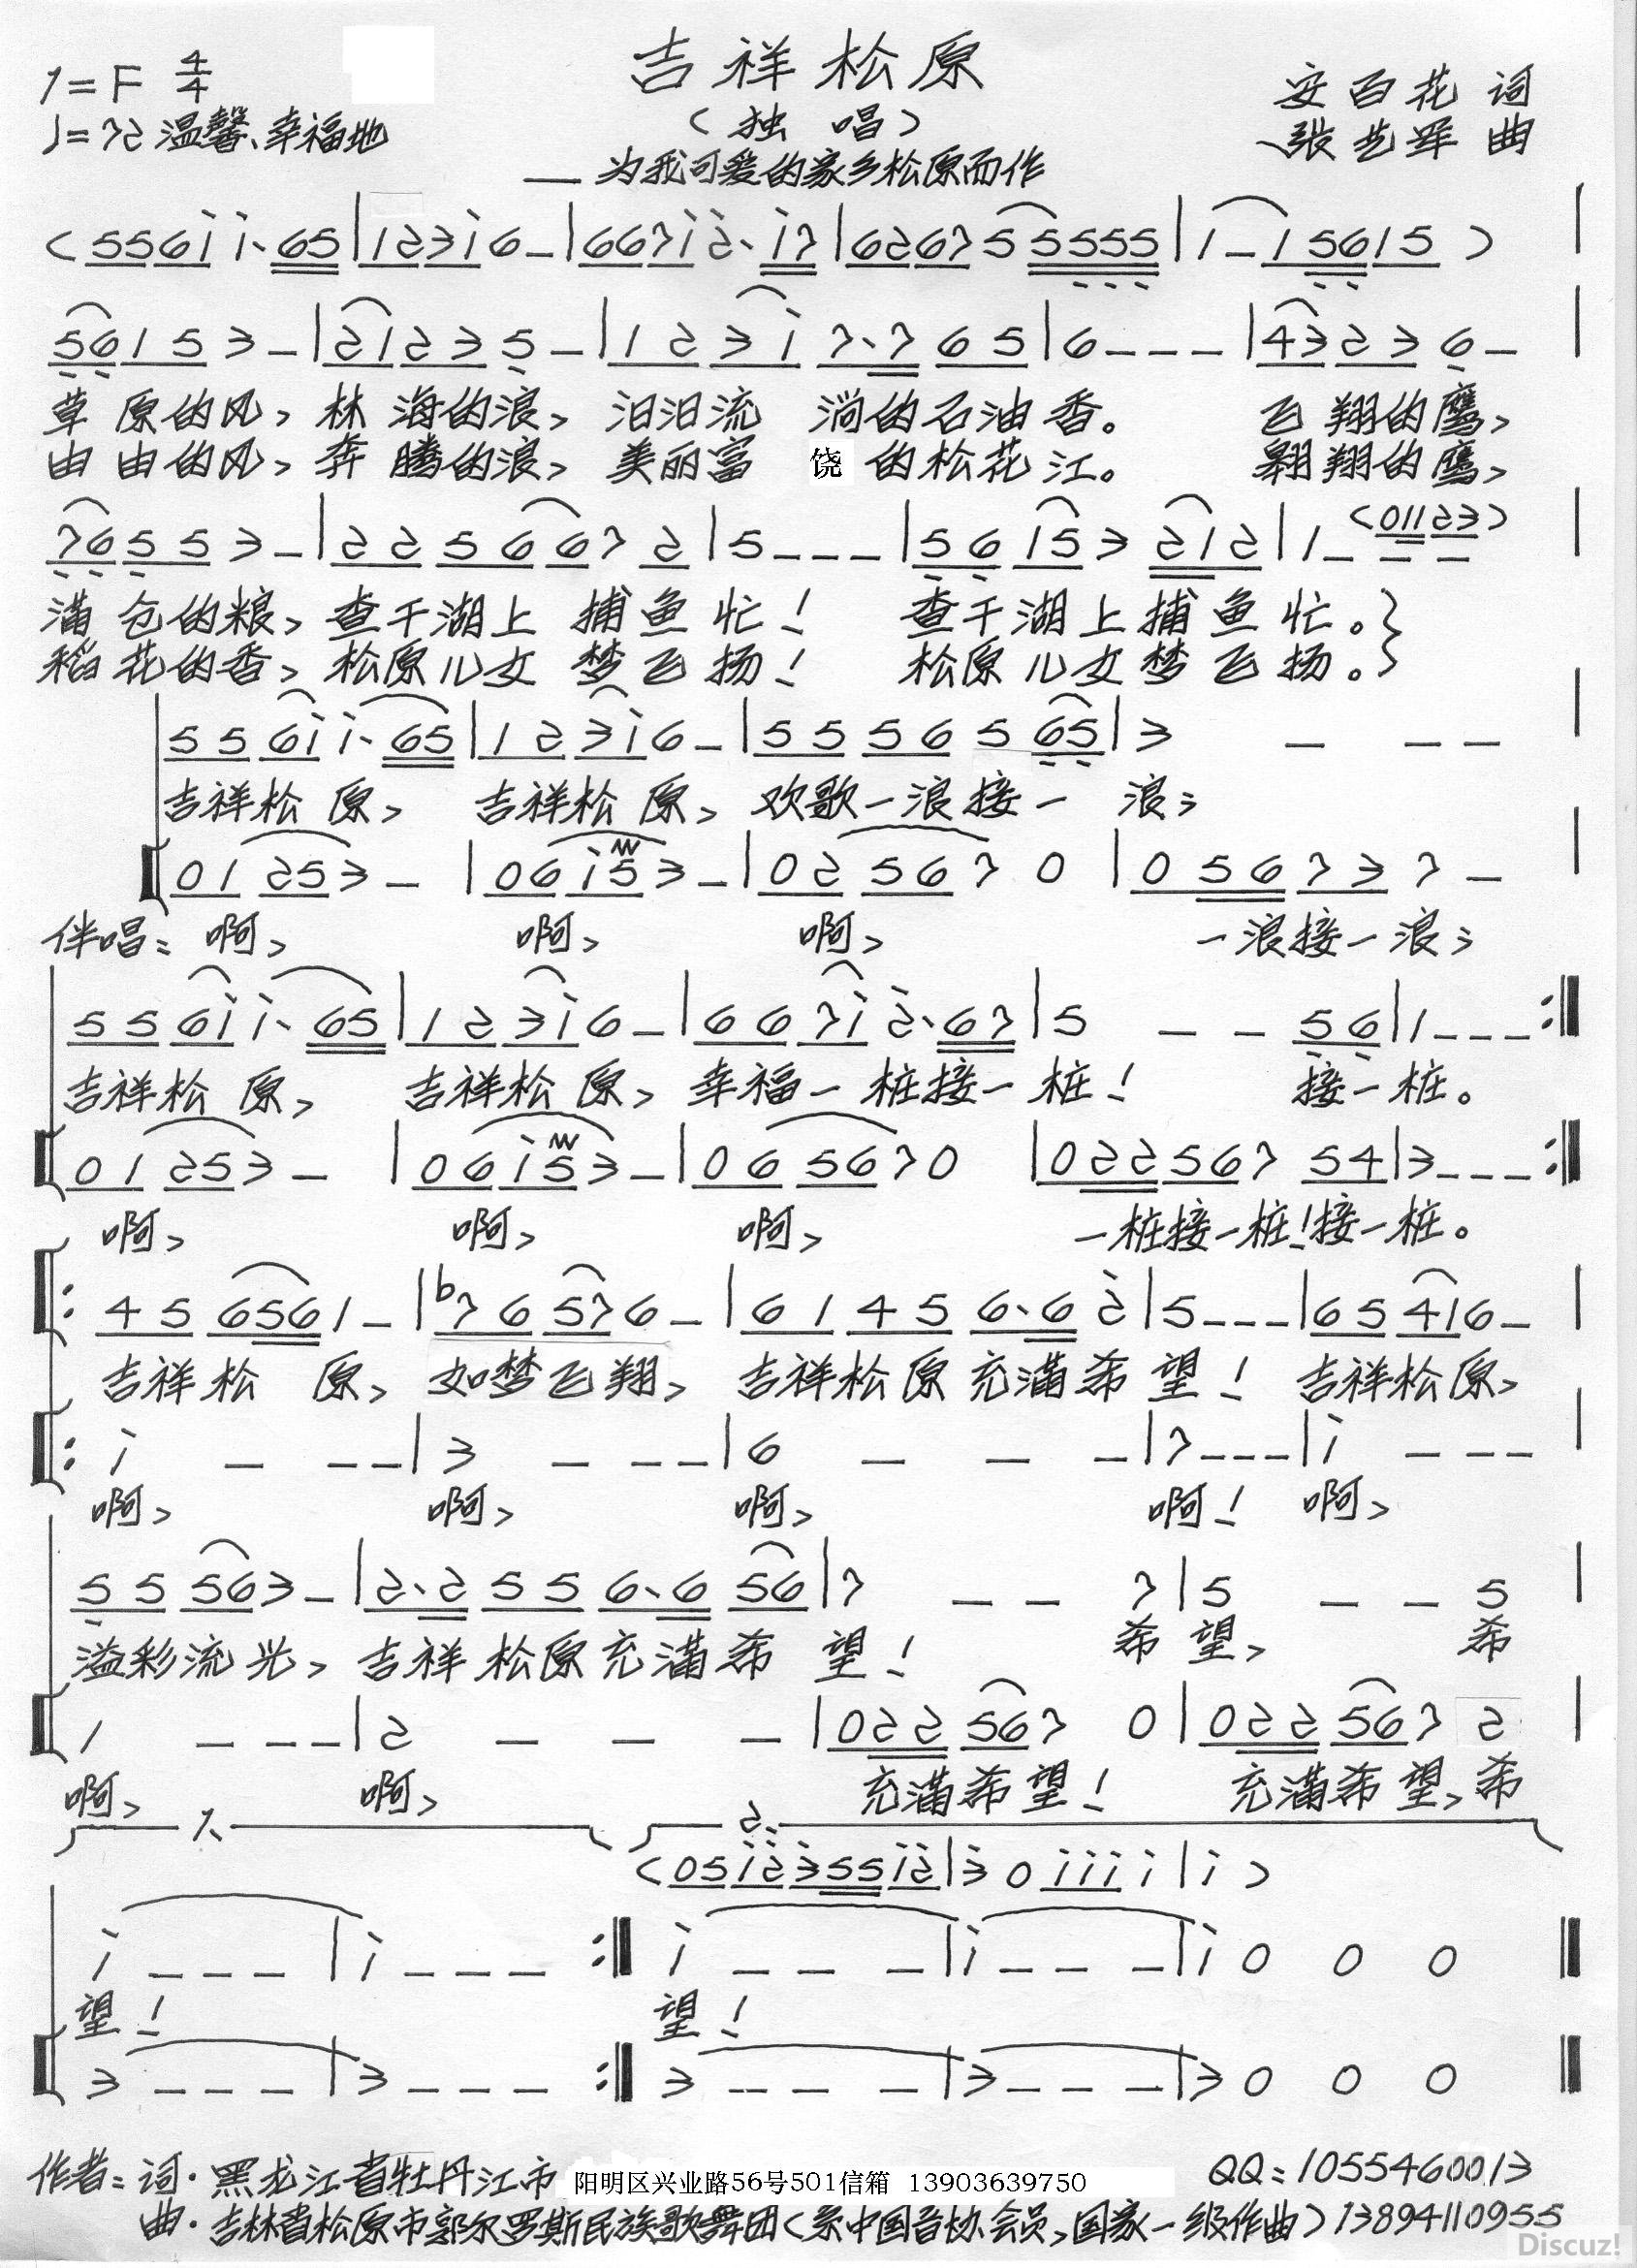 吉祥松原
1=F 4/4
（独唱）
安百花 词
♩=72 温馨、幸福地
张艺军 曲
——为我可爱的家乡松原而作
（5561 1·65|12316-|66712·17|626755555|1-15615）|
56153-|21235-|12317·765|6---|43236-|
草原的风，林海的浪，汨汨流淌的石油香。飞翔的鹰，
由由的风，奔腾的浪，美丽富饶的松花江。翱翔的鹰，
（01123）
76553-|2256672|5---|56153212|1-
满仓的粮，查干湖上捕鱼忙！查干湖上捕鱼忙。}
稻花的香，松原儿女梦飞扬！松原儿女梦飞扬。}
55611·65|12316-|5556565|3---|
吉祥松原，吉祥松原，欢歌一浪接一浪；
01253-|06153-|025670|056737-|
伴唱：啊，啊，啊，一浪接一浪；
55611·65|12316-|66712·67|5--56|1---:‖
吉祥松原，吉祥松原，幸福一桩接一桩！接一桩。
01253-|06153-|065670|02256754|3---:‖
啊，啊，啊，一桩接一桩！接一桩。
‖:456561-|b76576-|61456·62|5---|65416-|
吉祥松原，如梦飞翔，吉祥松原充满希望！吉祥松原，
‖:1---|3---|6---|7---|1---|
啊，啊，啊，啊！啊，
55563-|2·2556·656|7--7|5--5|
溢彩流光，吉祥松原充满希望！希望，希
1---|2---|0225670|0225672|
啊，啊，充满希望！充满希望，希
1. 2.
（051235512|301111|1）
1---|1---:‖1---|1---|1000‖
望！望！
3---|3---:‖3---|3---|3000‖
作者：词·黑龙江省牡丹江市 阳明区兴业路56号501信箱 13903639750 QQ：1055460013
曲·吉林省松原市郭尔罗斯民族歌舞团（系中国音协会员，国家一级作曲）13894110955
Discuz!